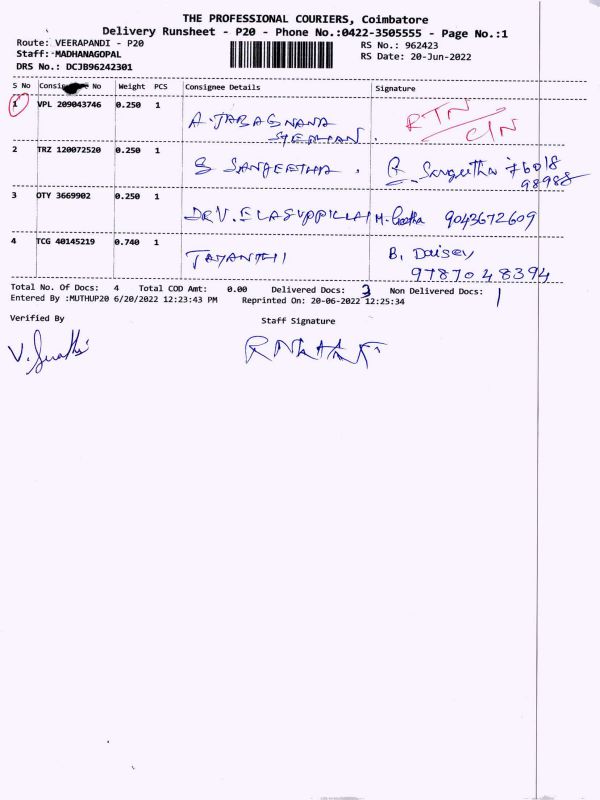 THE PROFESSIONAL COURIERS, Coimbatore
Delivery Runsheet - P20 - Phone No.:0422-3505555 - Page No.:1
Route: VEERAPANDI - P20 RS No.: 962423
Staff: MADHANAGOPAL RS Date: 20-Jun-2022
DRS No.: DCJB96242301
S No Consignee No Weight PCS Consignee Details Signature
1 VPL 209043746 0.250 1 A. JABAGNANA RTN
STEPHAN. C/N
2 TRZ 120072520 0.250 1 S SANGEETHA. R. Sangeetha 76018
98988
3 OTY 3669902 0.250 1 DR V. ELASUPPILLAI M. Geetha 9043672609
4 TCG 40145219 0.740 1 JAYANTHI B. Daisey
9787048394
Total No. Of Docs: 4 Total COD Amt: 0.00 Delivered Docs: 3 Non Delivered Docs: 1
Entered By :MUTHUP20 6/20/2022 12:23:43 PM Reprinted On: 20-06-2022 12:25:34
Verified By Staff Signature